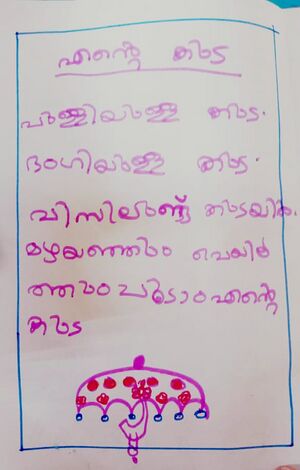 എൻ്റെ കുട
പുള്ളിയുള്ള കുട.
ഭംഗിയുള്ള കുട.
വിസിലുണ്ട് കുടയിൽ.
മഴയത്തും വെയിൽ
ത്തും ചൂടാം എൻ്റെ
കുട